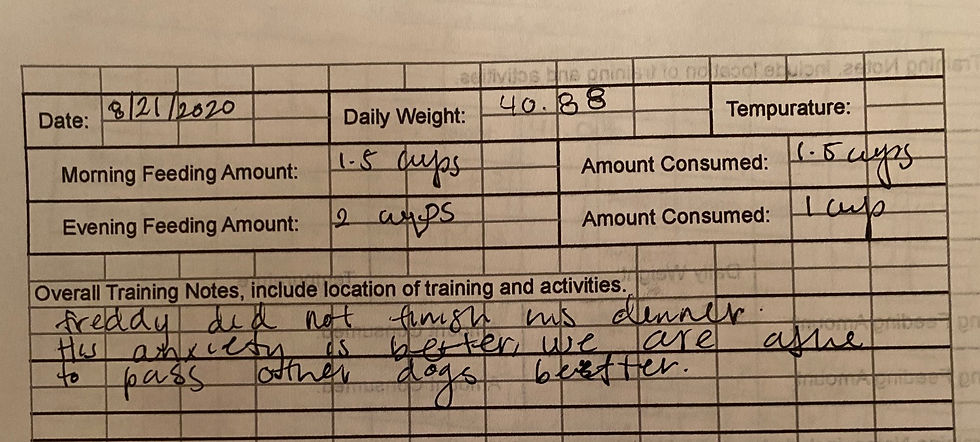 Date: 8/21/2020 Daily Weight: 40.88 Tempurature:
Morning Feeding Amount: 1.5 cups Amount Consumed: 1.5 cups
Evening Feeding Amount: 2 cups Amount Consumed: 1 cup
Overall Training Notes, include location of training and activities.
freddy did not finish his dinner.
His anxiety is better, we are
to pass other dogs better.